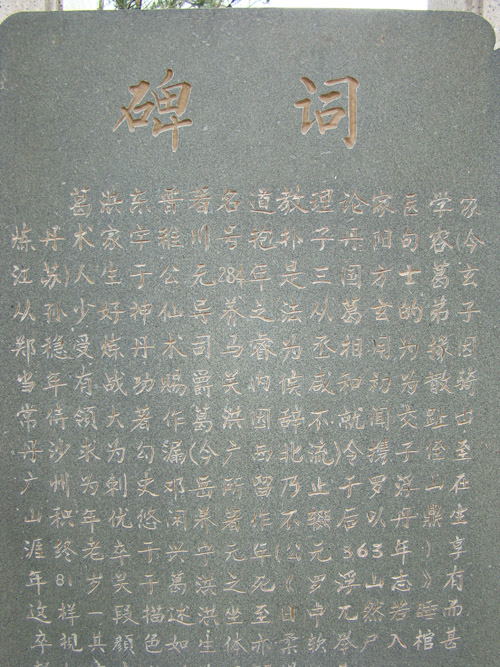 碑词
葛洪东晋著名道教理论家医学家
炼丹术家字稚川号抱朴子丹阳句容(今
江苏)人生于公元284年是三国方士葛玄
从孙少好神仙导养之法从葛玄的弟子
郑稳受炼丹术司马睿为丞相用为缘因
当年有战功赐爵关内侯咸和初为散骑
常侍领大著作葛洪固辞不就闻交趾古
丹沙求为勾漏(今广西北流)令携子侄至
广州为刺史邓岳所留乃止于罗浮二在
山积年优悠闲养著作不辍后以丹鼎生
涯终老卒于兴宁元年(公元363年)享
年81岁关于葛洪之死《罗浮山志》有
这样一段描述洪坐至日中兀然若睡而
卒视其颜色如生体亦柔软举尸入棺甚